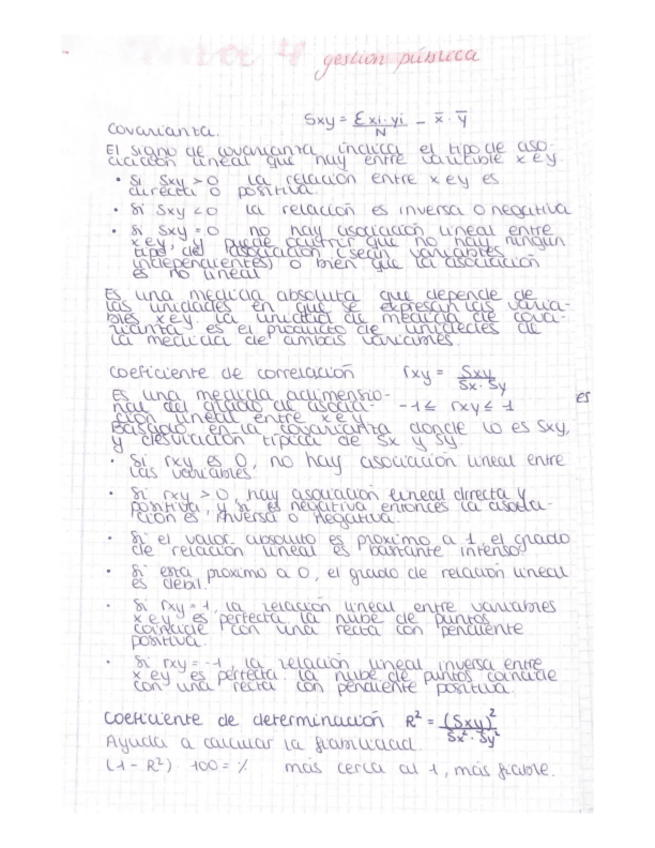 4 gestión pública
Covarianza. Sxy = Σxi·yi / N - x̄·ȳ
El signo de covarianza indica el tipo de aso-
ciación lineal que hay entre variable x e y.
• Si Sxy > 0 la relación entre x e y es
directa o positiva.
• Si Sxy < 0 la relación es inversa o negativa
• Si Sxy = 0 no hay asociación lineal entre
x e y, y puede ocurrir que no hay ningún
tipo de asociación (sean variables
independientes) o bien que la asociación
es no lineal
Es una medida absoluta que depende de
las unidades en que se expresan las varia-
bles x e y. La unidad de medida de cova-
rianza es el producto de unidades de
la medida de ambas variables.
Coeficiente de correlación rxy = Sxy / Sx·Sy
Es una medida adimensio-
nal del grado de asocia- -1 ≤ rxy ≤ 1 es
ción lineal entre x e y
Basado en la covarianza donde lo es Sxy,
y desviación típica de Sx y Sy
• Si rxy es 0, no hay asociación lineal entre
las variables.
• Si rxy > 0, hay asociación lineal directa y
positiva, y si es negativa entonces la asocia-
ción es inversa o negativa.
• Si el valor absoluto es proximo a 1, el grado
de relación lineal es bastante intenso.
• Si esta proximo a 0, el grado de relación lineal
es débil.
• Si rxy = 1, la relación lineal entre variables
x e y es perfecta. La nube de puntos
coincide con una recta con pendiente
positiva.
• Si rxy = -1, la relación lineal inversa entre
x e y es perfecta. La nube de puntos coincide
con una recta con pendiente positiva.
Coeficiente de determinación R² = (Sxy)² / Sx²·Sy²
Ayuda a calcular la fiabilidad.
(1 - R²) · 100 = % más cerca al 1, más fiable.